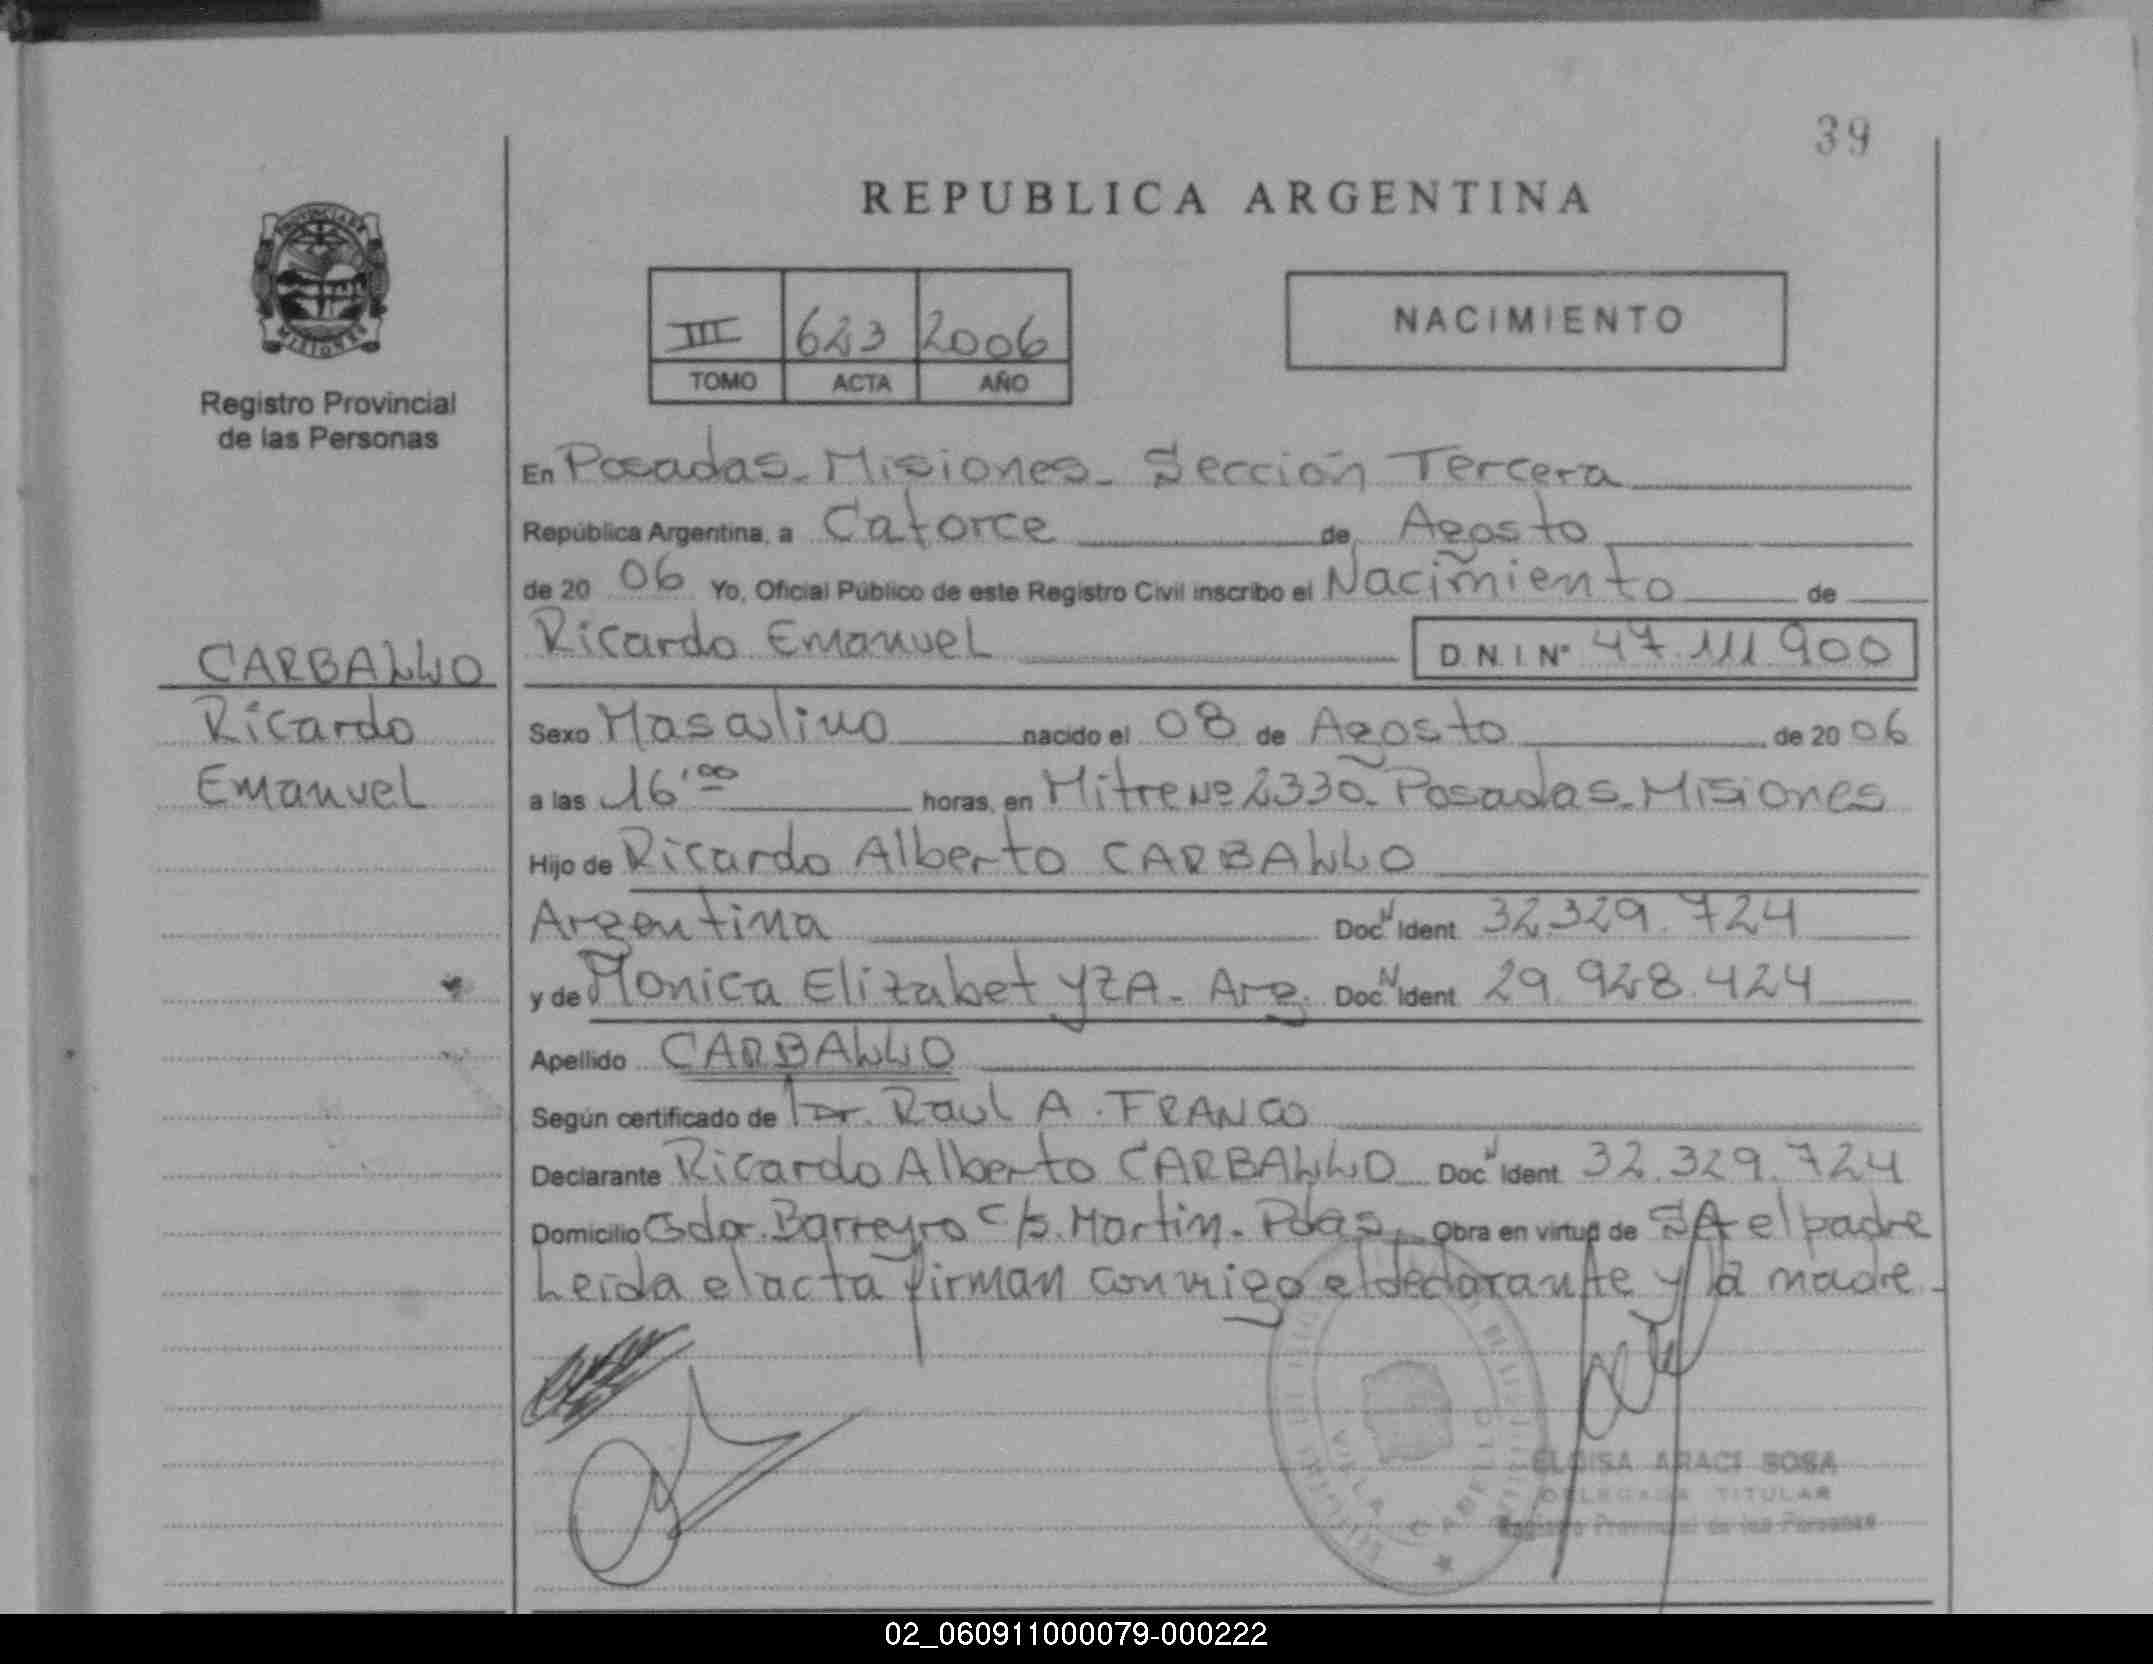 39
REPUBLICA ARGENTINA
PROVINCIA DE
MISIONES
III 623 2006
TOMO ACTA AÑO
NACIMIENTO
Registro Provincial
de las Personas
En Posadas - Misiones - Sección Tercera
República Argentina, a Catorce de Agosto
de 20 06 Yo, Oficial Público de este Registro Civil inscribo el Nacimiento de
Ricardo Emanuel D.N.I. N° 47.111.900
CARBALLO
Ricardo
Emanuel
Sexo Masculino nacido el 08 de Agosto de 20 06
a las 16'00 horas, en Mitre Nº 2330 - Posadas - Misiones
Hijo de Ricardo Alberto CARBALLO
Argentina Doc N Ident 32.329.724
y de Monica Elizabet YZA - Arg. Doc N Ident 29.928.424
Apellido CARBALLO
Según certificado de Dr. Raul A. FRANCO
Declarante Ricardo Alberto CARBALLO Doc N Ident 32.329.724
Domicilio Gdor. Barreyro c/s. Martin - Pdas. Obra en virtud de SA el padre
Leida el acta firman conmigo el declarante y la madre -
VILLA CABELLO
ELOISA ARACI SOSA
DELEGADA TITULAR
Registro Provincial de las Personas
02_060911000079-000222